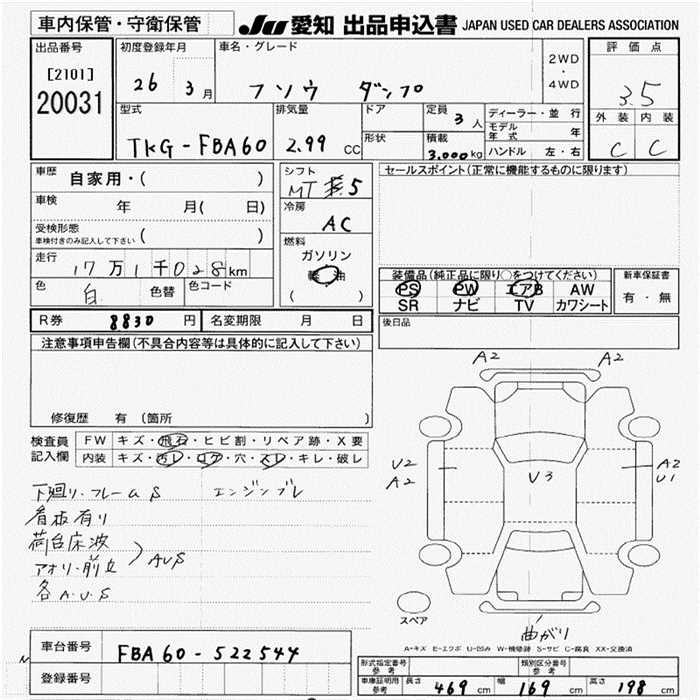 車内保管・守衛保管
JU 愛知 出品申込書 JAPAN USED CAR DEALERS ASSOCIATION
出品番号
[2101]
20031
初度登録年月
26 3月
車名・グレード
フソウ ダンプ
2WD
・
4WD
評価点
3.5
外装 内装
C C
型式
TKG-FBA60
排気量
2.99 CC
ドア
形状
定員
3人
積載
3,000kg
ディーラー・並行
モデル年式 年
ハンドル 左・右
車歴
自家用・( )
車検
年 月( 日)
受検形態
車検付きのみ記入して下さい ( )
走行
17万1千028km
色
白 色替
色コード
シフト
MT 5
冷房
AC
燃料
ガソリン
軽油
( )
セールスポイント(正常に機能するものに限ります)
装備品(純正品に限り○をつけてください)
PS PW エアB AW
SR ナビ TV カワシート
新車保証書
有・無
R券 8830 円
名変期限 月 日
後日品
注意事項申告欄(不具合内容等は具体的に記入して下さい)
修復歴 有(箇所
検査員
記入欄
FW キズ・飛石・ヒビ割・リペア跡・X要
内装 キズ・汚レ・コゲ・穴・スレ・キレ・破レ
下廻り・フレームS エンジンブレ
看板有り
荷台床波
アオリ・前立
AUS
各A.U.S
A2 A2
U2
A2
U3
A2
U1
スペア
曲がり
A-キズ E-エクボ U-凹み W-補修跡 S-サビ C-腐食 XX-交換済
車台番号
FBA60-522544
登録番号
型式指定番号
参考
類別区分番号
参考
車庫証明用
参考
長さ 469 cm
幅 169 cm
高さ 198 cm